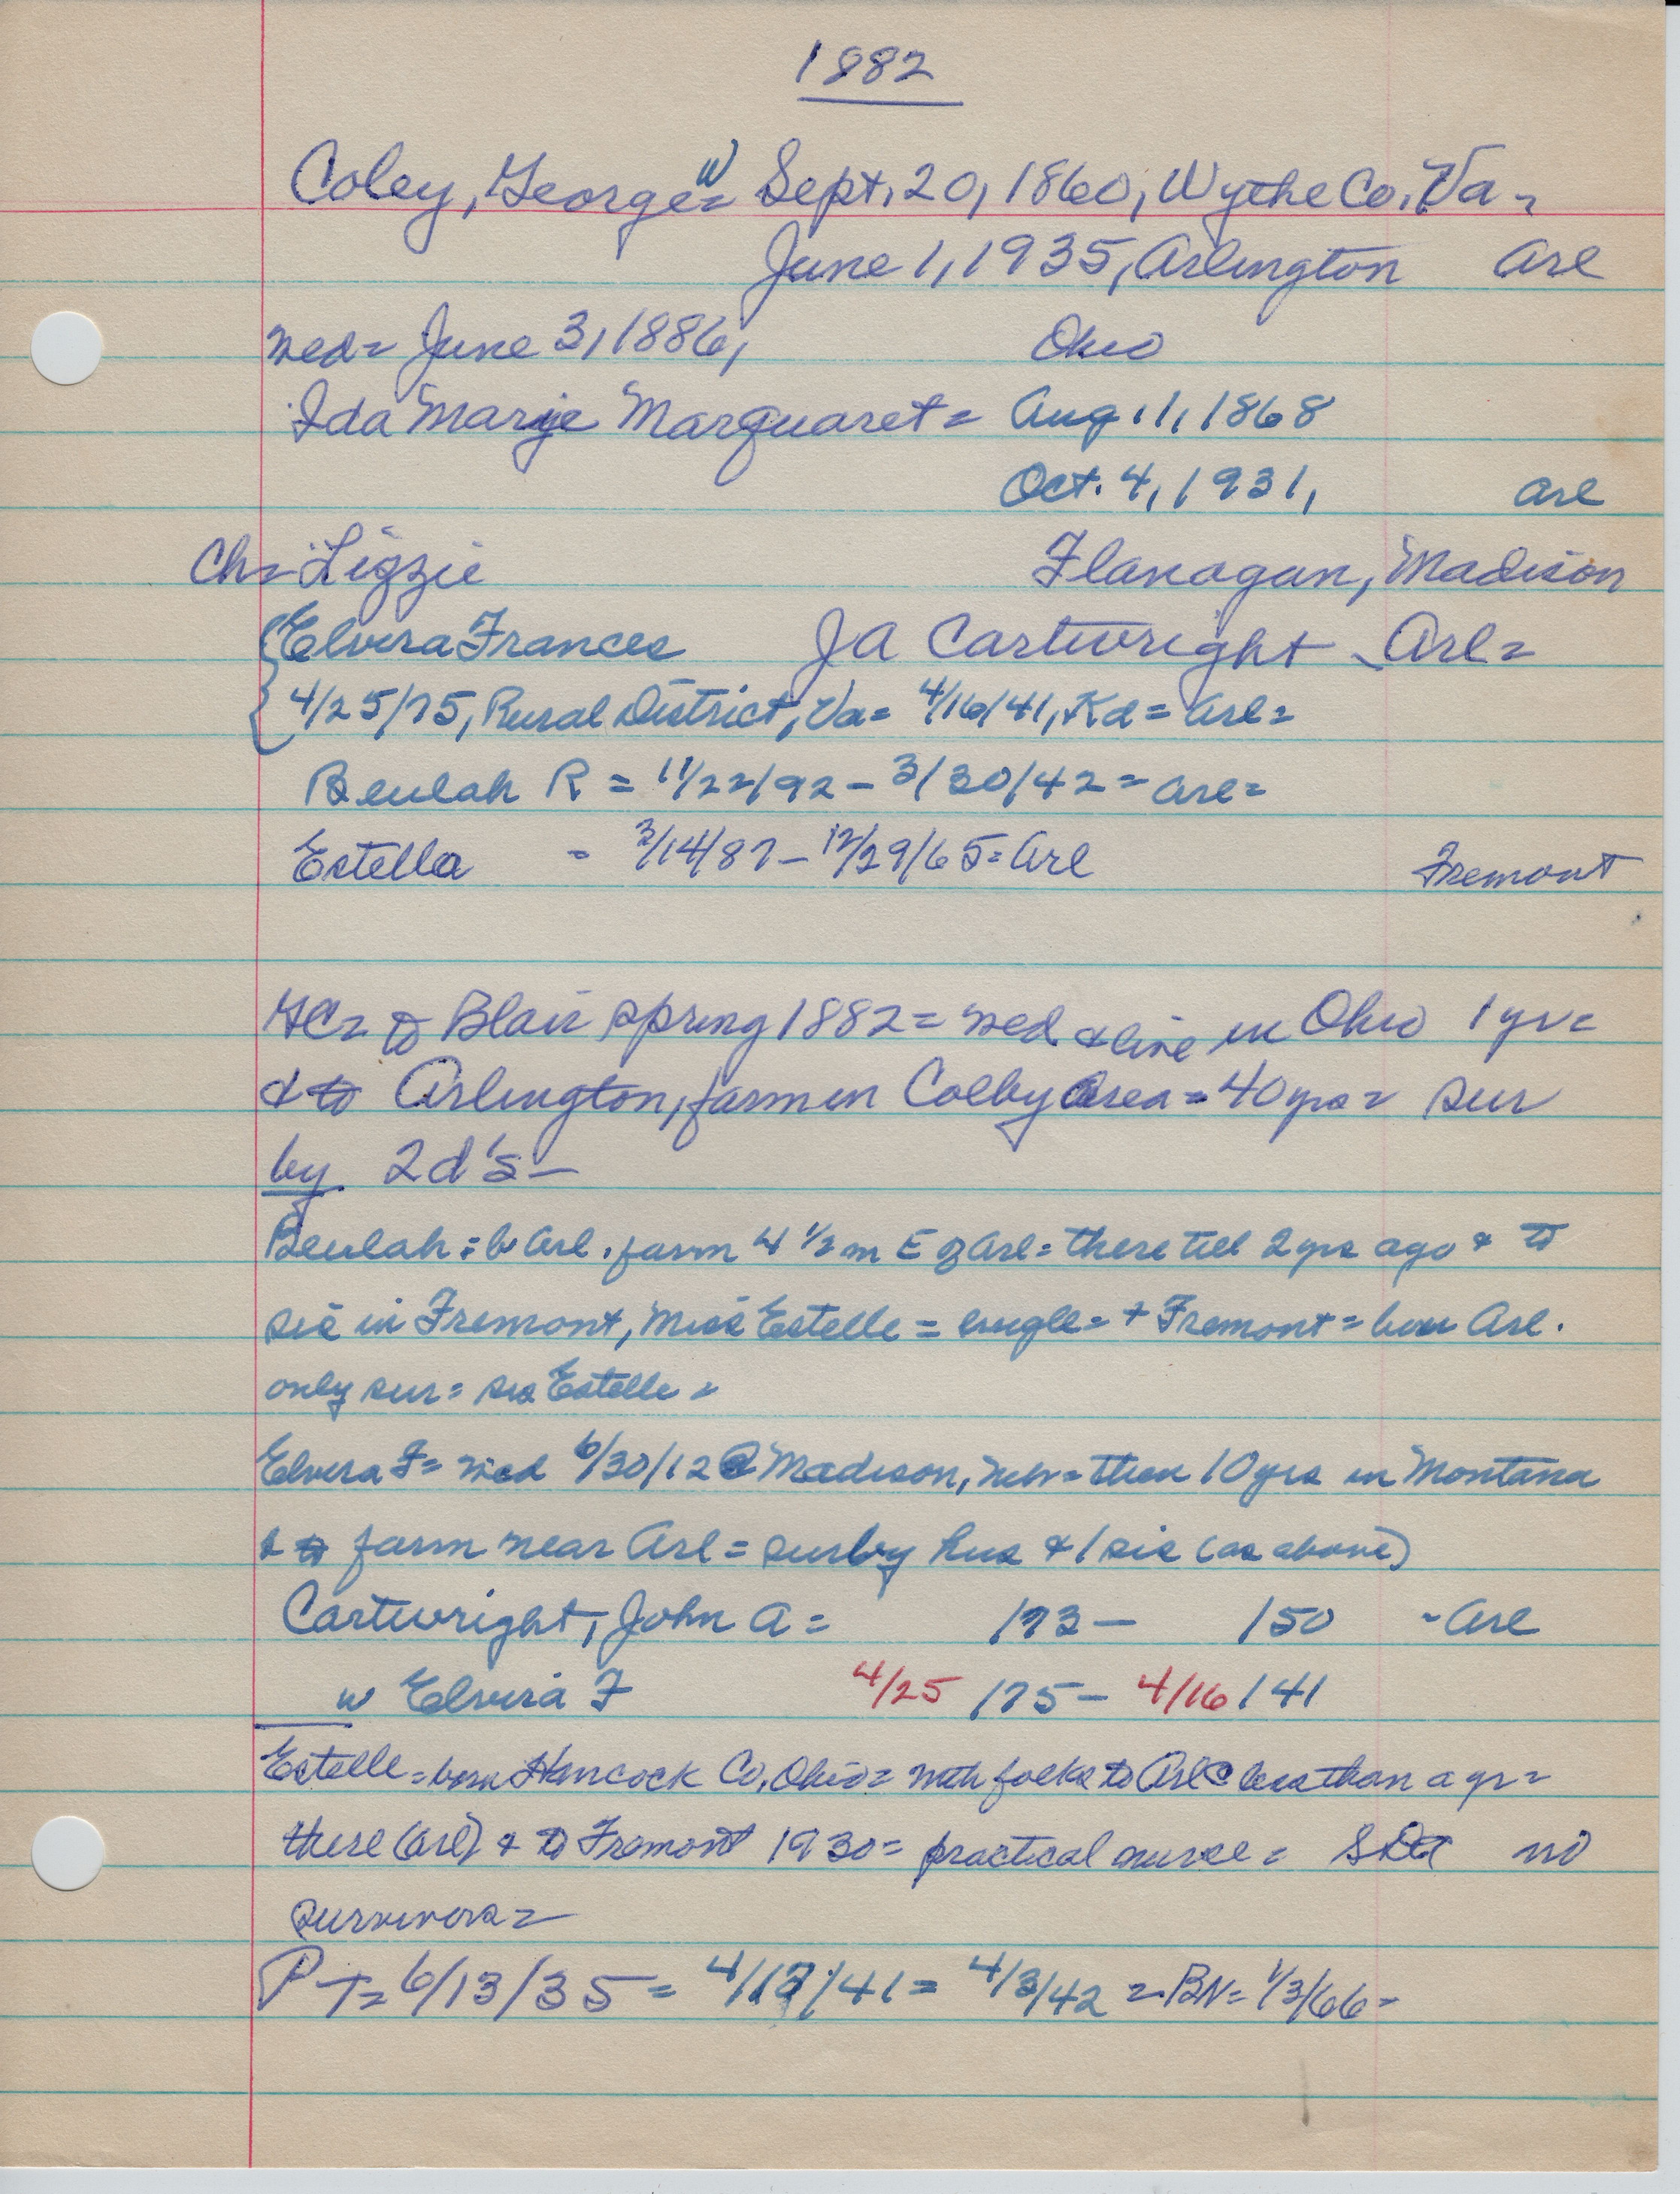 1882
Coley, George W = Sept. 20, 1860, Wythe Co. Va =
June 1, 1935, Arlington Arl
wed = June 3, 1886, Ohio
Ida Marye Marquaret = Aug. 11, 1868
Oct. 4, 1931, Arl
Ch = Lizzie Flanagan, Madison
Elvera Frances JA Cartwright - Arl =
4/25/75, Rural District, Va = 4/16/41, Kd = Arl =
Beulah R = 11/22/92 - 3/30/42 = Arl =
Estella = 3/14/87 - 12/29/65 = Arl Fremont
GC = to Blair spring 1882 = wed & live in Ohio 1 yr =
& to Arlington, farm in Colby Area = 40 yrs = sur
by 2 d's -
Beulah = b Arl. farm 4 1/2 m E of Arl = there till 2 yrs ago & to
sis in Fremont, Miss Estelle = single = + Fremont = bur Arl.
only sur = sis Estelle =
Elvera F = wed 6/30/12 @ Madison, Neb = then 10 yrs in Montana
& to farm near Arl = sur by hus & 1 sis (as above)
Cartwright, John A = /73 - /50 - Arl
w Elvira F 4/25 /75 - 4/16 /41
Estelle = born Hancock Co, Ohio = with folks to Arl @ less than a yr =
there (Arl) & to Fremont 1930 = practical nurse = no
survivors =
PT = 6/13/35 = 4/17/41 = 4/3/42 = BN = 1/3/66 =